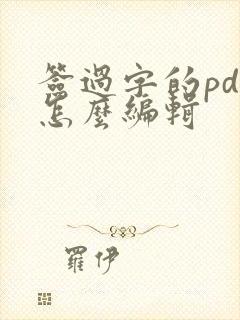 簽過字的pd
怎麼編輯
羅伊